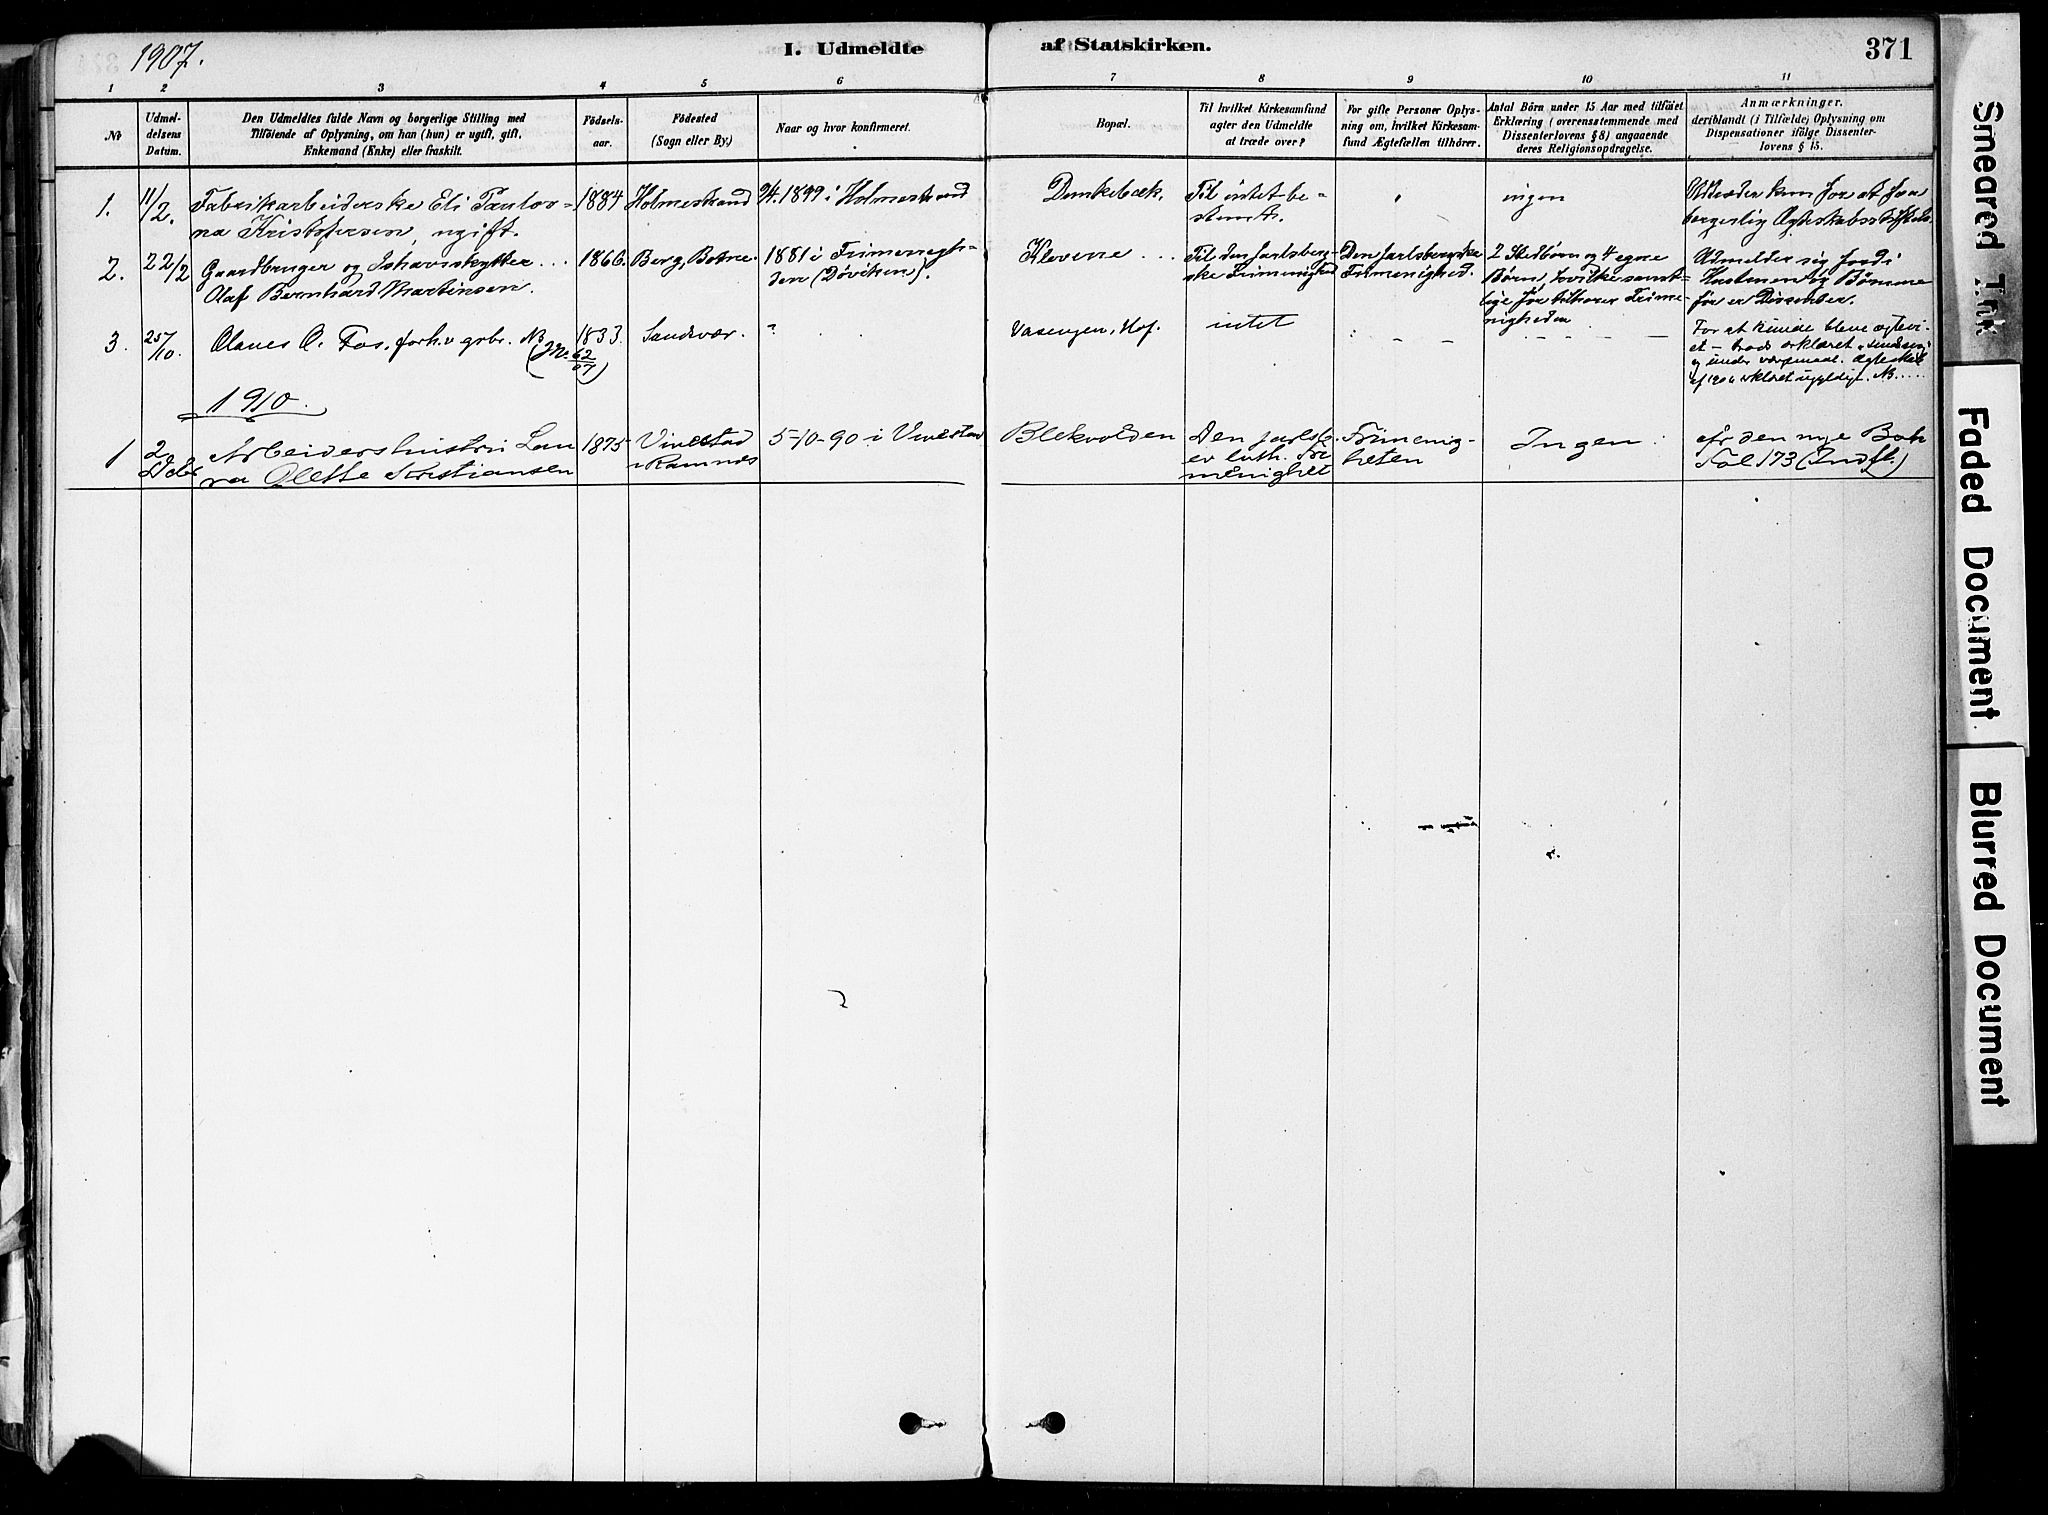 1907.
I. Udmeldte af Statskirken.
371
1 2 3 4 5 6 7 8 9 10 11
No
Udmel-
delsens
Datum.
Den Udmeldtes fulde Navn og borgerlige Stilling med
Tilföiende af Oplysning, om han (hun) er ugift, gift,
Enkemand (Enke) eller fraskilt.
Födsels-
aar.
Födested
(Sogn eller By.)
Naar og hvor konfirmeret.
Bopæl.
Til hvilket Kirkesamfund
agter den Udmeldte
at træde over?
For gifte Personer Oplys-
ning om, hvilket Kirkesam-
fund Ægtefællen tilhörer.
Antal Börn under 15 Aar med tilföiet
Erklæring (overensstemmende med
Dissenterlovens § 8) angaaende
deres Religionsopdragelse.
Anmærkninger,
deriblandt (i Tilfælde) Oplysning om
Dispensationer ifölge Dissenter-
lovens § 15.
1.
11/2.
Fabrikarbeiderske Eli Paulov-
na Kristofersen, ugift.
1884
Holmestrand
1899 i Holmestrand
Dunkebæk.
Til intet be-
stemt.
"
ingen
Udtræder kun for at faa
borgerlig Ægteskabsstiftelse.
2.
22/2
Gaardbruger og Ishavsskytter ...
Olaf Bernhard Martinsen.
1866.
Berg, Botne.
1881 i Frimenigh-
den (Døviken).
Klovene ...
Til den Jarlsberg-
ske Frimenighed
Den Jarlsbergske
Frimenighed.
2 Stedbørn og 4 egne
Børn, hvilke samt-
lige før tilhører Frime-
nigheden
Udmelder sig fordi
Hustruen og Børnene
før er Dissenter.
3.
25/10.
Olaves O. Fos, forh.v. gbr. NB
(J.N. 62/07)
1833.
Sandsvær.
"
Vasengen, Hof.
intet
" - - -
- - - -
For at kunde bleve ægtevi-
et - trods erklæret
og under værgemaal. Ægteskab
af 1906 erklæret ugyldigt. NB.....
1910.
1
2
Dcbr
Arbeiderhustru Lau-
ra Olette Kristiansen
1875
Vivestad
i Ramnes
5-10-90 i Vivestad
Blekvolden
Den jarlsb.
ev luth. Fri
menighet
Frimenig-
heten
Ingen
Se den nye Bok
Fol 173 (Indfl.)
Smeared Ink
Faded Document
Blurred Document